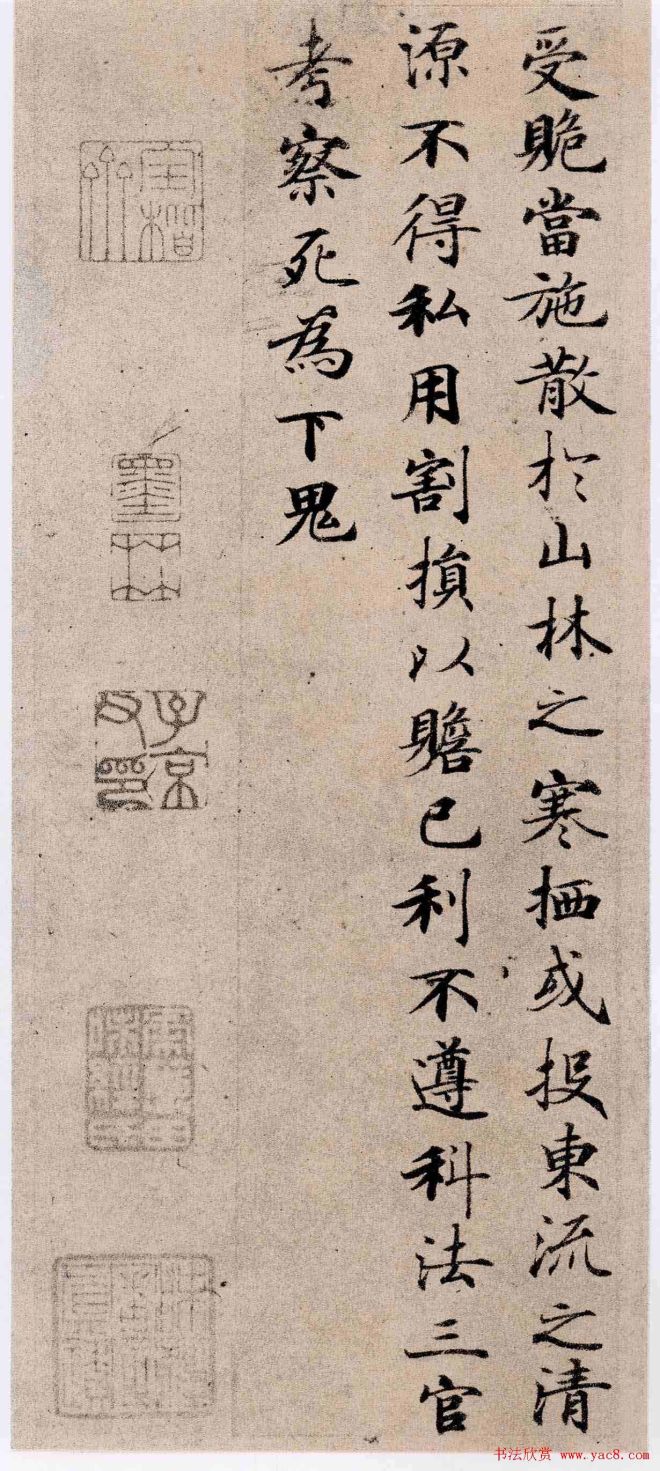 受賄當施散於山林之寒栖或投東流之清
源不得私用割損以贍己利不遵科法三官
考察死為下鬼
墨林
子京父印
书法欣赏 www.yac8.com